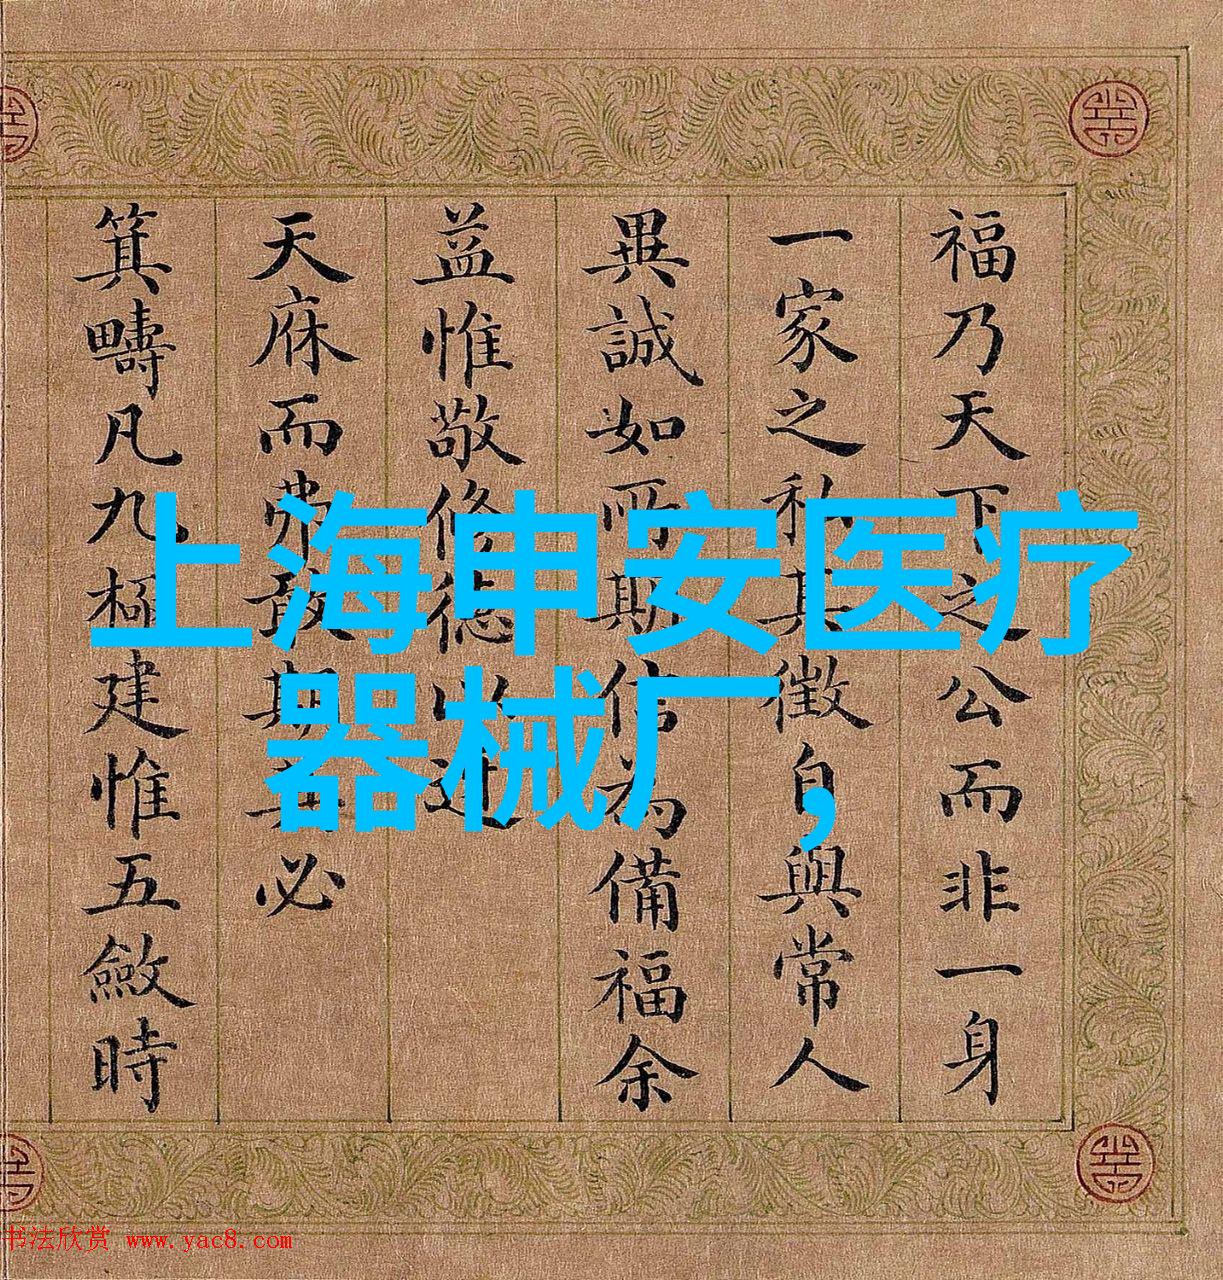 上海申安医疗
器械厂,
福乃天下之公而非一身
一家之私其徵自與常人
異誠如所期信為備福余
益惟敬修德以迓
天庥而弗敢期其必
箕疇凡九極建惟五斂時
书法欣赏 www.yac8.com